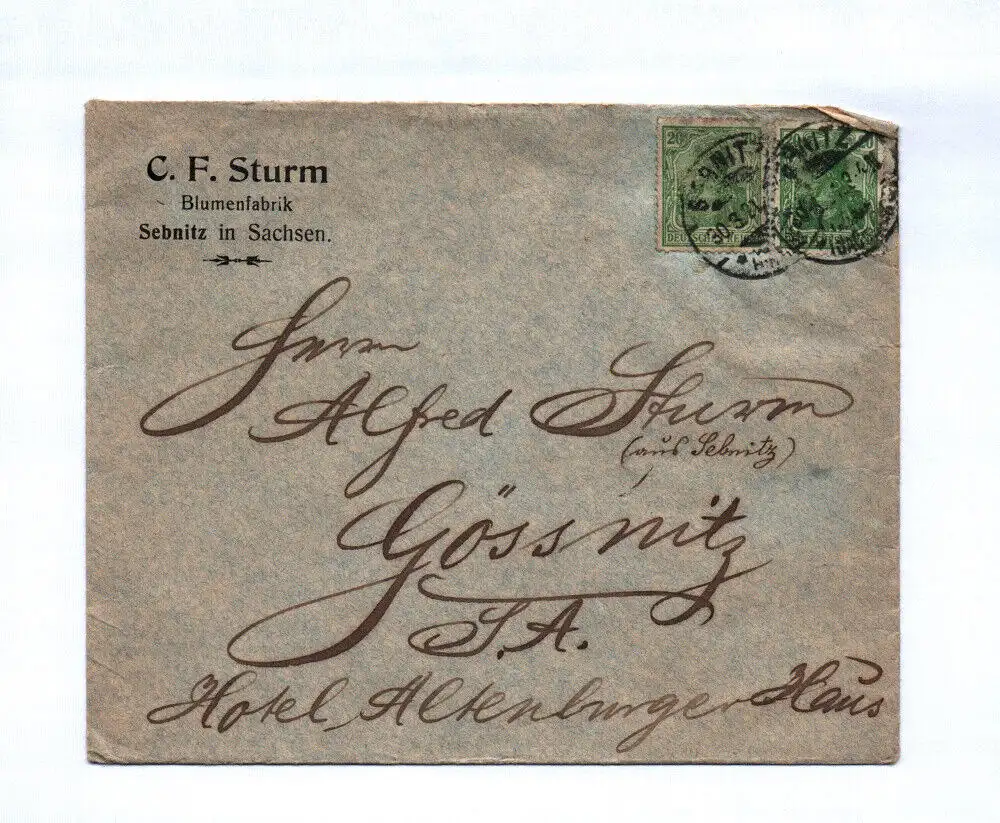 C. F. Sturm
Blumenfabrik
Sebnitz in Sachsen.
20
DEUTSCHES REICH
SEBNITZ
30.3.21
Herrn
Alfred Sturm
(aus Sebnitz)
Gössnitz
S.A.
Hotel Altenburger Haus